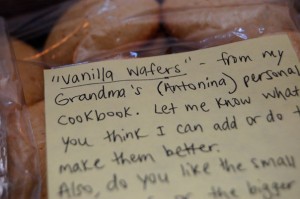 "Vanilla Wafers" - from my
Grandma's (Antonina) personal
cookbook. Let me know what
you think I can add or do t
make them better.
Also, do you like the small
or the bigger